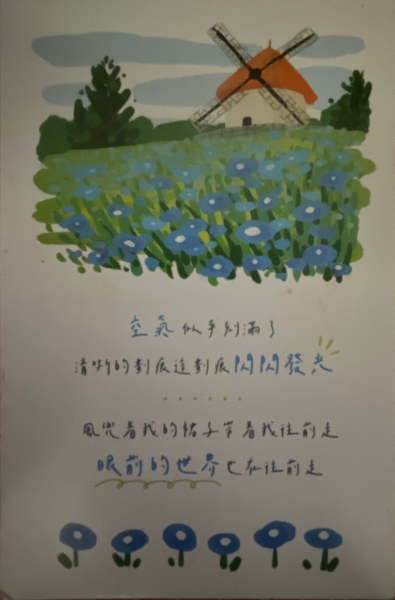 空氣似乎刻滿了
清晰的刻痕這刻痕閃閃發光
風兜着我的裙子帶着我往前走
眼前的世界也在往前走